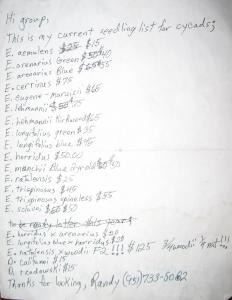 Hi group,
This is my current seedling list for cycads;
E. aemulens $25 $15
E. arenarius Green $50 $40
E. arenarius Blue $65 $55
E. cerrinus $75
E. eugene-maraisii $65
E. lehmannii $75
E. lehmannii Kirkwood $65
E. longifolius green $35
E. longifolius blue $45
E. horridus $50.00
E. munchii Blue 2yrold $50
E. natalensis $25
E. trispinosus $45
E. trispinosus spineless $55
E. sclavoi $60 $50
to be ready later this year;
E. horridus x arenarius $50
E. longifolius blue x horridus $50
E. natalensis x woodii F2 !!! $125 3/4 woodii 1/4 nat !!!
D. califanoi $15
D. tradouskii $15
Thanks for looking, Randy (951) 733-5062